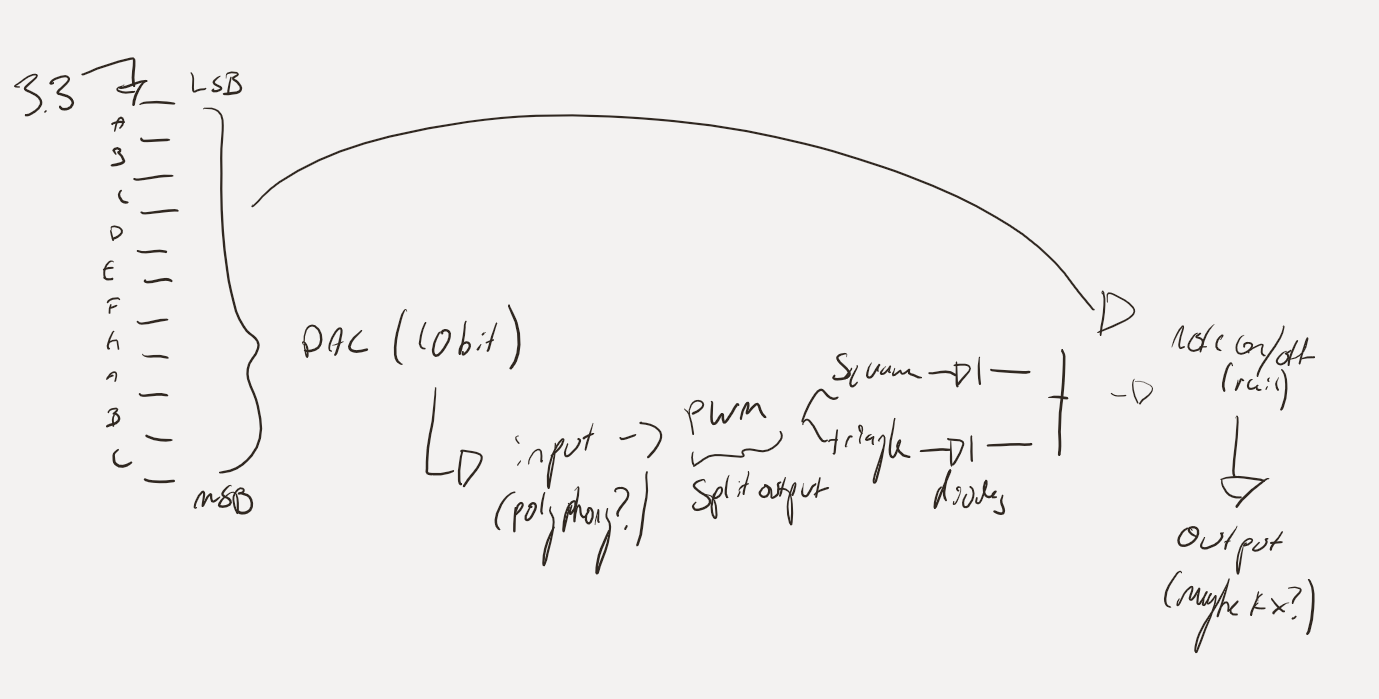 3.3
LSB
A
B
C
D
E
F
G
A
B
C
MSB
DAC (10bit)
input
(polyphony?)
PWM
Split output
Square
triagle
diodes
note on/off
(rail)
Output
(maybe FX?)